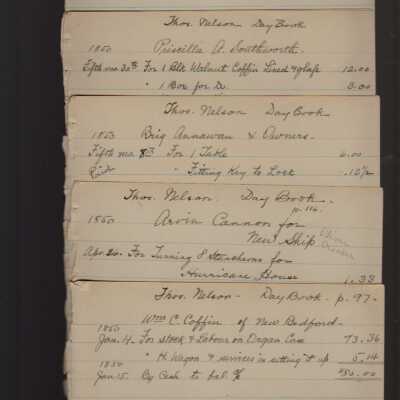 Thos. Nelson Day Book
1850 Priscilla A. Southworth.
Fifth mo 30th For 1 Blk Walnut Coffin Lined & glass 12.00
" 1 Box for Do. 3.00
Thos. Nelson Day Book.
1853 Brig Annawan & Owners.
Fifth mo 8th For 1 Table 6.00
Paid " Fitting Key to Lock .12½
Thos. Nelson. Day Book.
p. 116.
1850 Arvin Cannon for
New Ship
Apr. 20. For Turning 8 Stanchions for
Hurricane House 1.33
Thos. Nelson - Day Book - p. 97.
Wm C. Coffin of New Bedford.
1850
Jan. 4. For stock & Labour on Organ Case 73.36
" H. Wagon & services in setting it up 5.14
1850
Jan 15. By Cash to bal. %